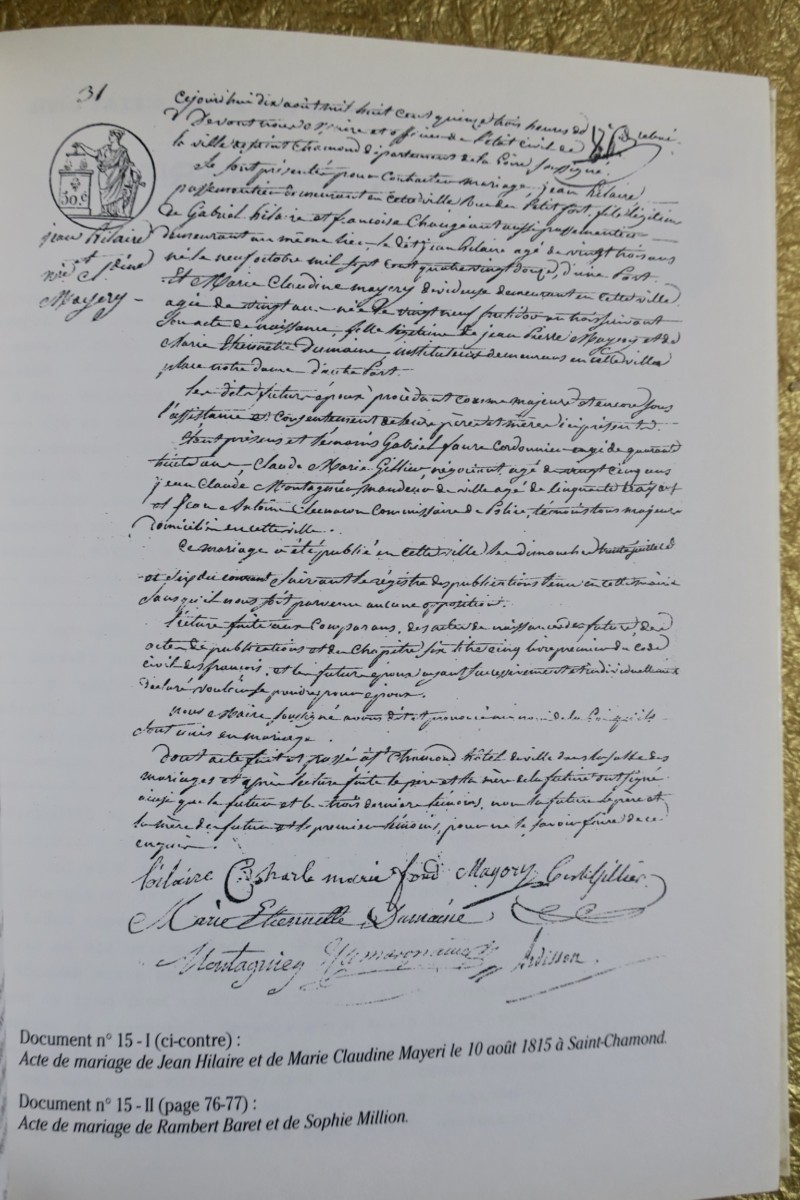 31
Cejourd'hui dix août mil huit cent quinze à trois heures du relevé
Devant nous Maire et officier de l'état civil de
la ville de Saint Chamond département de la Loire soussigné
Se sont présentés pour contracter mariage jean hilaire
passementier demeurant en cette ville Rue du Petit fort, fils légitime
de Gabriel hilaire et francoise aussi passementier
30.c
jean hilaire
et
Mayery
demeurant au même lieu le dit jean hilaire agé de vingt trois ans
né le neuf octobre mil sept cent quatre vingt douze, d'une Part
Et Marie Claudine mayery devideuse demeurant en cette ville
agée de vingt ans née le vingt neuf fructidor an trois suivant
Son acte de naissance, fille légitime de jean Pierre Mayery et de
Marie Etiennette Dumaine instituteurs demeurans en cette ville
place notre dame d'autre Part.
Les dits futurs époux procédant comme majeurs et encore sous
l'assistance et consentement de leurs pères et mères ici présents.
Etant présens et témoins Gabriel faure Cordonnier agé de quarante
huit ans, Claude Marie Gillier négociant agé de vingt cinq ans
jean Claude Montagnier mandeur de ville agé de cinquante
et Jean Antoine Commissaire de Police, témoins tous majeurs
domiciliés en cette ville.
Ce mariage a été publié en cette ville les dimanches trente juillet
et six du courant Suivant le régistre des publications tenu en cette mairie
Sans qu'il nous soit parvenu aucune opposition.
lecture faite aux Comparans, des actes de naissance des futurs, des
actes de publications et du Chapitre six titre cinq livre premier du code
civil des françois, et les futurs époux ayant successivement et individuellement
déclaré vouloir se prendre pour époux.
nous Maire soussigné avons dit et prononcé au nom de la Loi qu'ils
sont unis en mariage.
Dont acte fait et passé à St Chamond hôtel de ville dans la salle des
mariages et après lecture faite le père et la mère de la future ont signé
ainsi que le futur et les trois derniers témoins, non la future le père et
la mère du futur et le premier témoin, pour ne le savoir faire de ce
enquis.
hilaire Charle marie fond Mayery Gillier
Marie Etiennette Dumaine
Montagnier Ardisson
Document n° 15 - I (ci-contre) :
Acte de mariage de Jean Hilaire et de Marie Claudine Mayeri le 10 août 1815 à Saint-Chamond.
Document n° 15 - II (page 76-77) :
Acte de mariage de Rambert Baret et de Sophie Million.